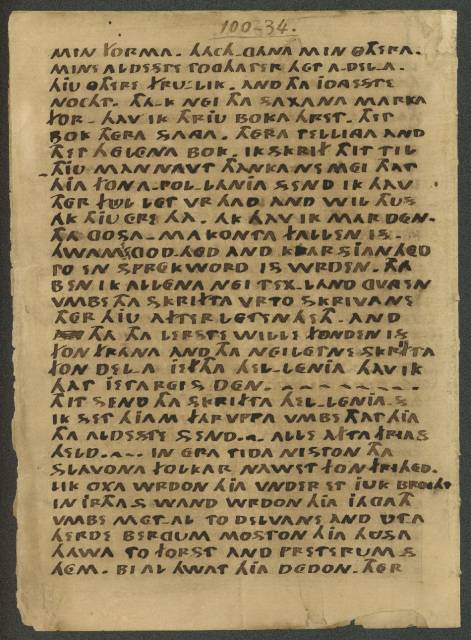 100-34.
MIN FORMA. HACH GVNG MIN OTHERA.
MINE ALDESTE TOGHATER HET ADELA.
HIU OTHERE FRULIK. AND THA JONGSTE
NOCHT. THA-K NEI THA SAXANA MARKA
FOR. HAV IK THRIU BOKA HRET. THET
BOK THERA SANGA. THERA TELLINGA AND
THET HELENIA BOK. IK SKRIF THIT TIL
THIU MAN NAVT THANKANE MEI THAT
HIA FONA.POL.LANIA SEND IK HAV
THER FUL LET VR HAD AND WIL THUS
AK THIU ERE HA. AK HAV IK MAR DEN.
THA GOSA-MAKONTA FALLEN IS.
HWAMES GOD-HED AND KLARSIANHED
TO EN SPREKWORD IS WRDEN. THA
BEN IK ALLENA NEI TEX-LAND GVNGEN
VMBE THA SKRIFTA VRTO SKRIVANE
THER HIU AFTERLETEN HETH. AND
THA THA LERSTE WILLE FONDEN IS
FON FRANA AND THA NEILETNE SKRIFTA
FON DELA IEFTHA HEL-LENIA HAV IK
THAT IETA RGIS DEN.
THIT SEND THA SKRIFTA HEL-LENIA.S
IK SET HIAM FARVPPA VMBE THAT HIA
THA ALDESTE SEND. ALLE AFTA FRIAS
HELD. IN ERA TIDA NISTON THA
SLAVONA FOLKAR NAWET FON FRIHED.
LIK OXA WRDON HIA VNDER ET IUK BROCHT
IN IRTHAS WAND WRDON HIA IAGATH
VMBE METAL TO DELVANE AND UTA
HERDE BERGUM MOSTON HIA HUSA
HAWA TO FORST AND PRESTERUMS
HEM. BI AL HWAT HIA DEDON. THER